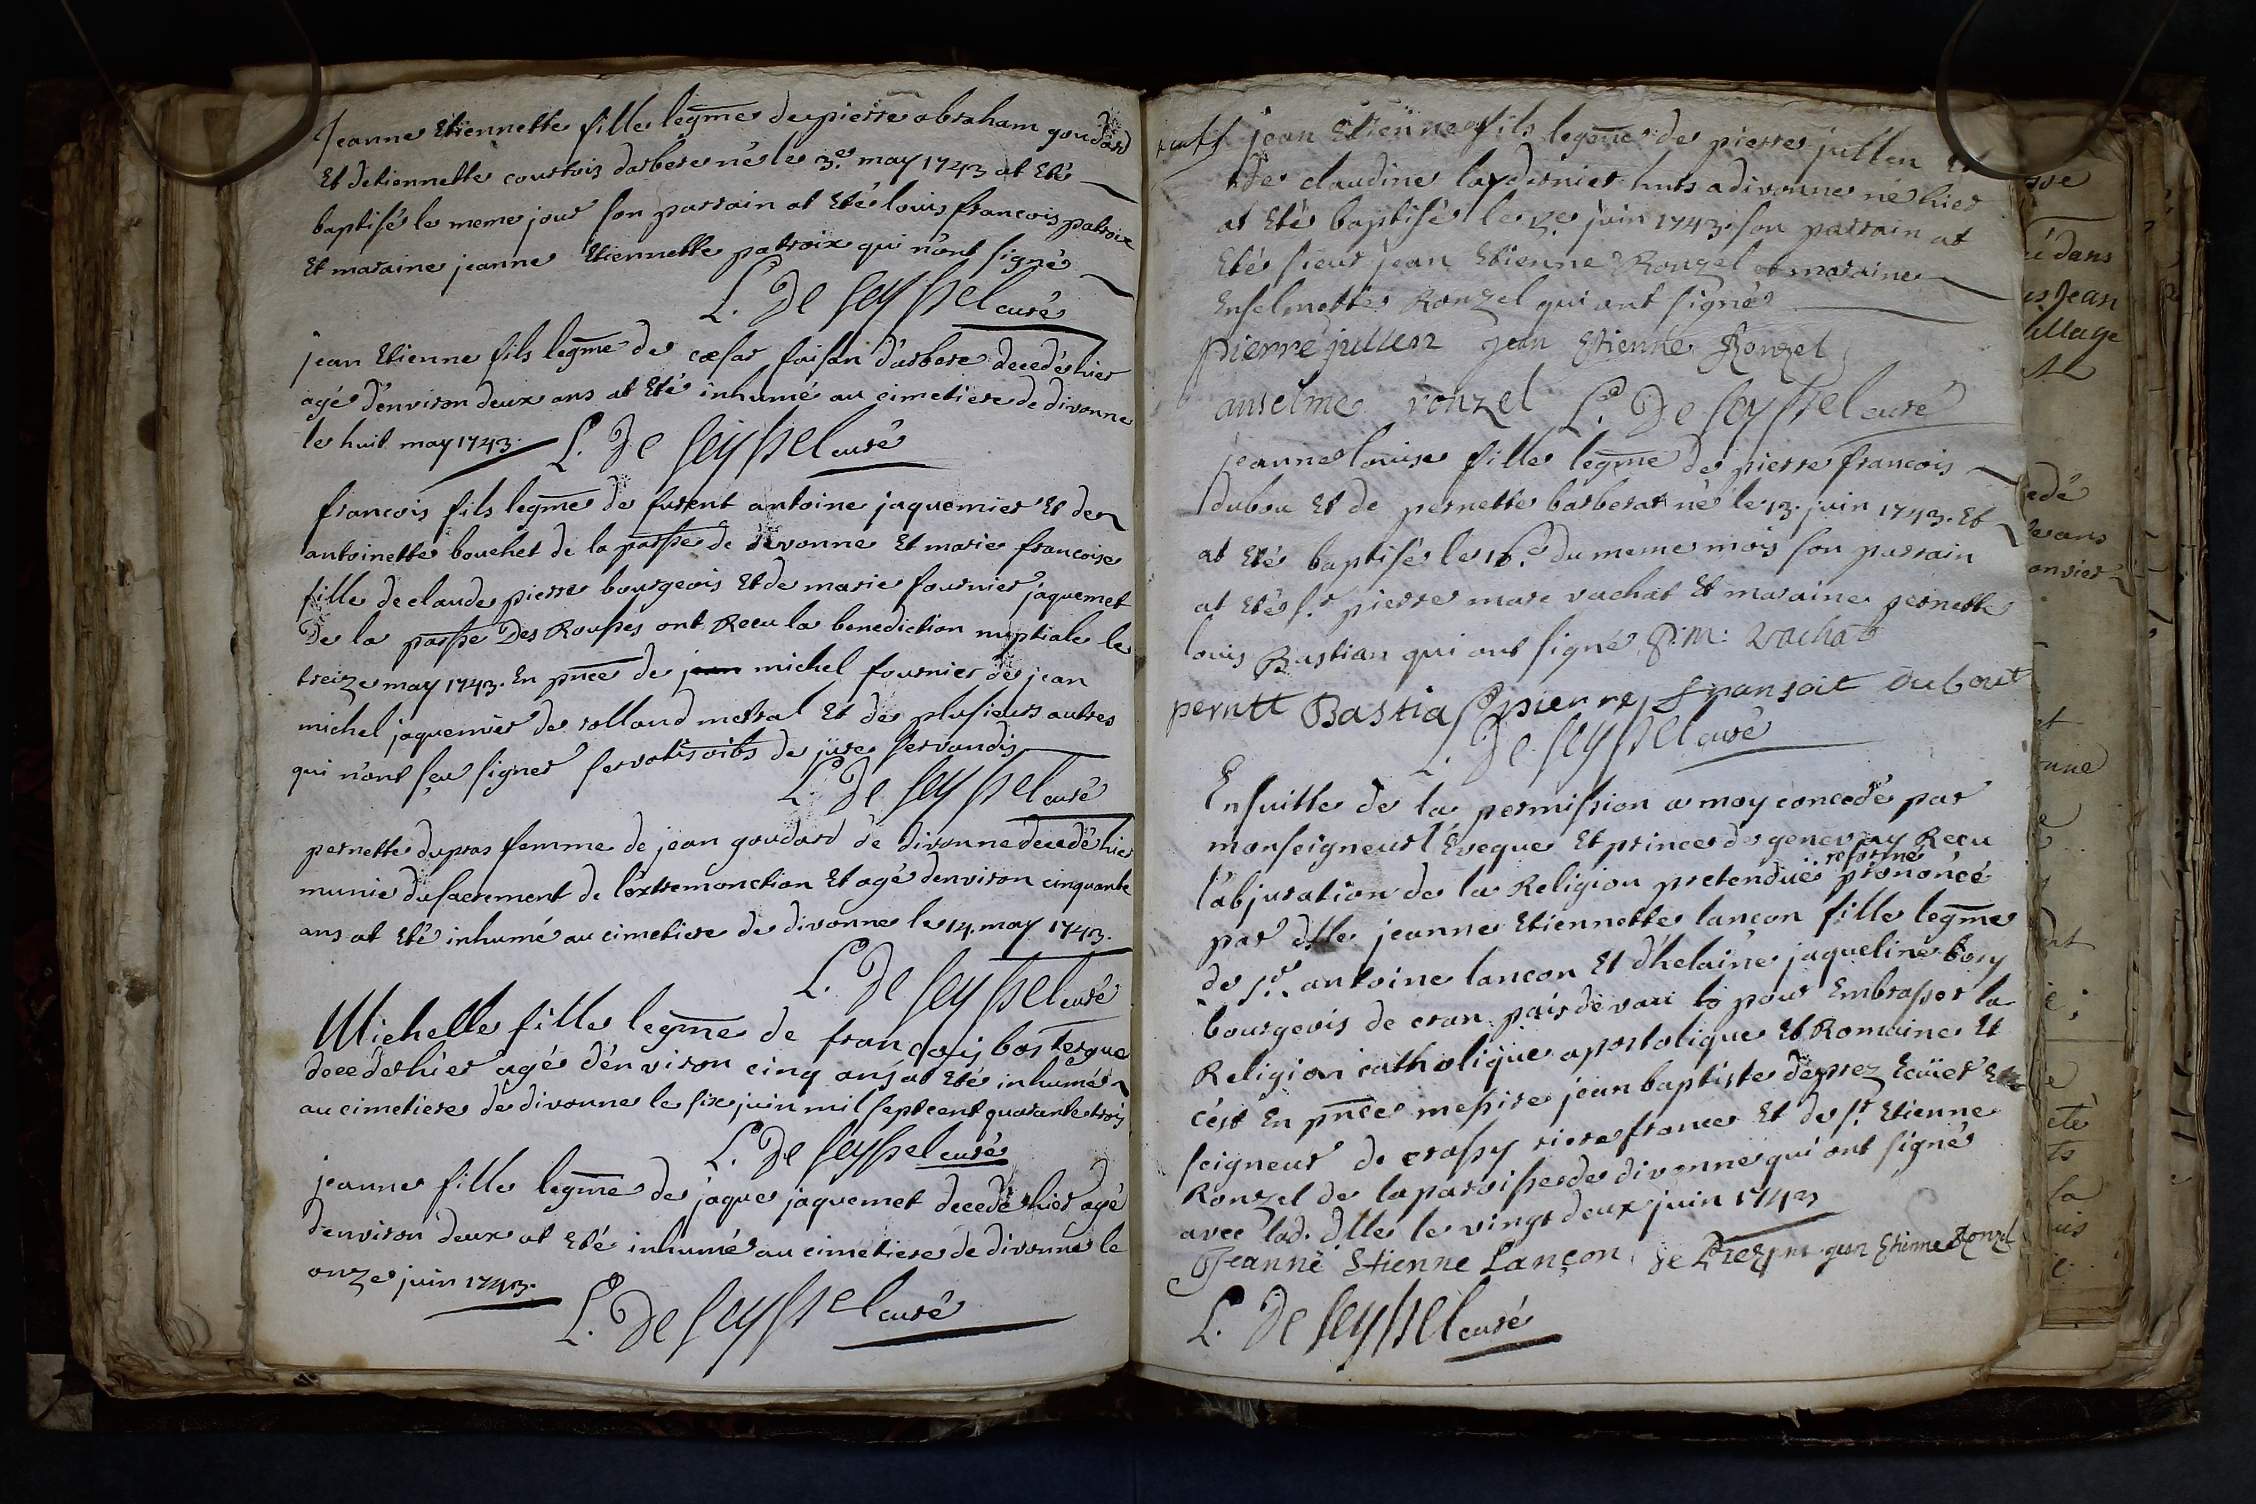 Jeanne Etiennette fille legme de pierre abraham goudard
Et detiennette courtois darbere né le 3.e may 1743 at Eté
baptisé le meme jour son parrain at Eté louis francois patroix
Et maraine jeanne Etiennette patroix qui n'ont signé
L. De Seyssel curé
jean Etienne fils legme de cæsar faisan d'arbere decedé hier
agé d'environ deux ans at Eté inhumé au cimetiere de divonne
le huit may 1743. L. De Seyssel curé
francois fils legme de furent antoine jaquemier Et de
antoinette bouchet de la passe de divonne Et marie francoise
fille de claude pierre bourgeois Et de marie fournier jaquemet
De la passe Des Rousses ont Recu la benediction nuptiale le
treize may 1743. En pnce de jean michel fournier de jean
michel jaquemier de rolland mettral Et de plusieurs autres
qui n'ont sçu signer servatis de jure servandis
L. De Seyssel curé
pernette dupras femme de jean goudard de divonne decedé hier
munie du sacrement de l'extremonction Et agé denviron cinquante
ans at Eté inhumé au cimetiere de divonne le 14. may 1743.
L. De Seyssel curé
Michelle fille legme de francois bastergue
decede hier agé d'environ cinq ans at Eté inhumé
au cimetiere de divonne le six juin mil sept cent quarante trois
L. De Seyssel curé
jeanne fille legme de jaque jaquemet decedé hier agé
denviron deux at Eté inhumé au cimetiere de divonne le
onze juin 1743.
L. De Seyssel curé
jean Etienne fils legme de pierre jullien Et
de claudine lavdernier huts a divonne né hier
at Eté baptisé le juin 1743. son parrain at
Eté sieur jean Etienne Ronzel et maraine
Enselmette Ronzel qui ont signé
pierre jullien Jean Etienne Ronzel
anselme ronzel L. De Seyssel curé
jeanne louise fille legme de pierre francois
dubou Et de pernette barberat né le 13. juin 1743. Et
at Eté baptisé le 16.e du meme mois son parrain
at Eté s.r pierre marc vachat Et maraine pernette
louis Bastian qui ont signé P: M: Vachat
perntt Bastia pierre fransoit Dubout
L. De Seyssel curé
Ensuitte de la permission a moy concedé par
monseigneur l'Eveque Et prince de geneve j'ay Recu
l'abjuration de la Religion pretenduë reformé prononcé
par dlle jeanne Etiennette lancon fille legme
de s.r antoine lancon Et d'helaine jaqueline bory
bourgeois de cran païs de vau pour Embrasser la
Religion catholique apostolique Et Romaine Et
c'est En pnce messire jean baptiste deprez Ecuïer
seigneur de crassy riere france Et de s.r Etienne
Ronzel de la paroisse de divonne qui ont signé
avec lad. dlle le vingt deux juin 1743
Jeanne Etienne Lançon De Prez jean Etienne Ronzel
L. De Seyssel curé
é dans
Jean
village
edé
ans
anvier
et
onne
eté
ts
la
uis